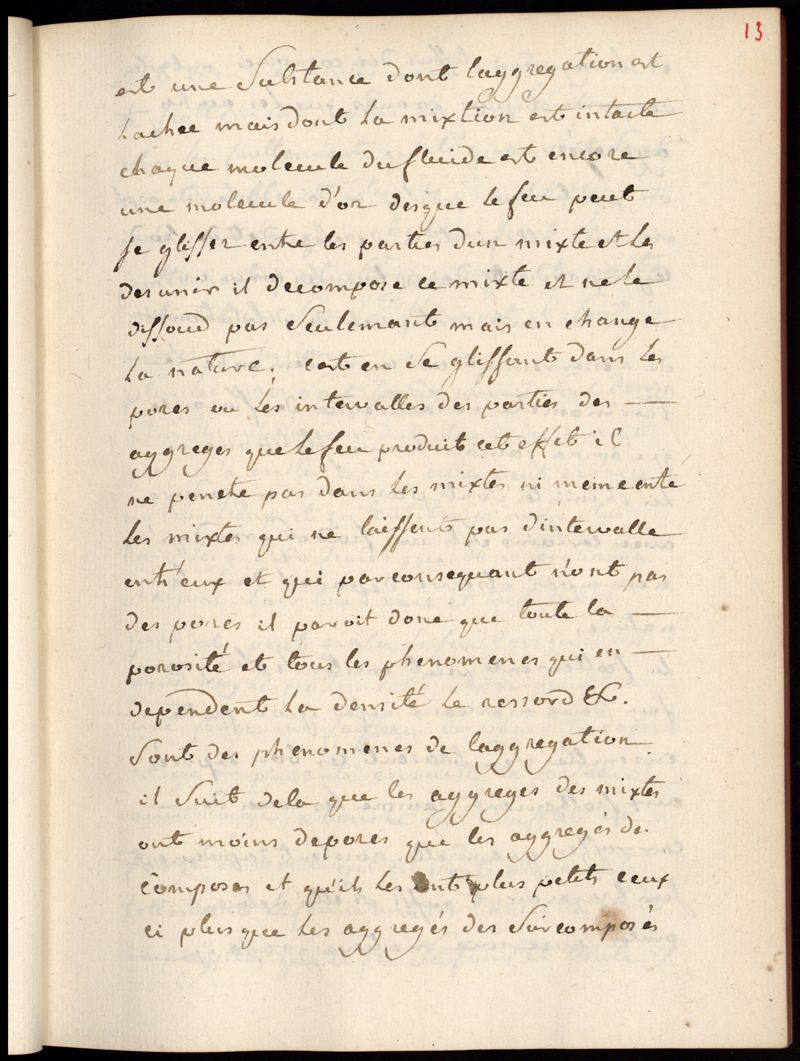 13
est une Substance dont laggregation est
lachee mais dont la mixtion est intacte
chaque molecule du fluide est encore
une molecule d'or desque le feu peut
se glisser entre les parties d'un mixte et les
desunir il decompose ce mixte et ne le
dissoud pas Seulemant mais en change
la nature. cest en Se glissant dans les
pores ou les intervalles des parties des —
aggreges que le feu produit cet effet il
ne penetre pas dans les mixtes ni meme entre
les mixtes qui ne laissent pas d'intervalle
entr'eux et qui parconsequant n'ont pas
des pores il paroit donc que toute la —
porosité et tous les phenomenes qui en —
dependent la densité le ressord &c.
Sont des phenomenes de laggregation
il Suit dela que les aggreges des mixtes
ont moins depores que les aggregés de
composes et qu'ils les ont plus petits ceux
ci plus que les aggregés des Surcomposés